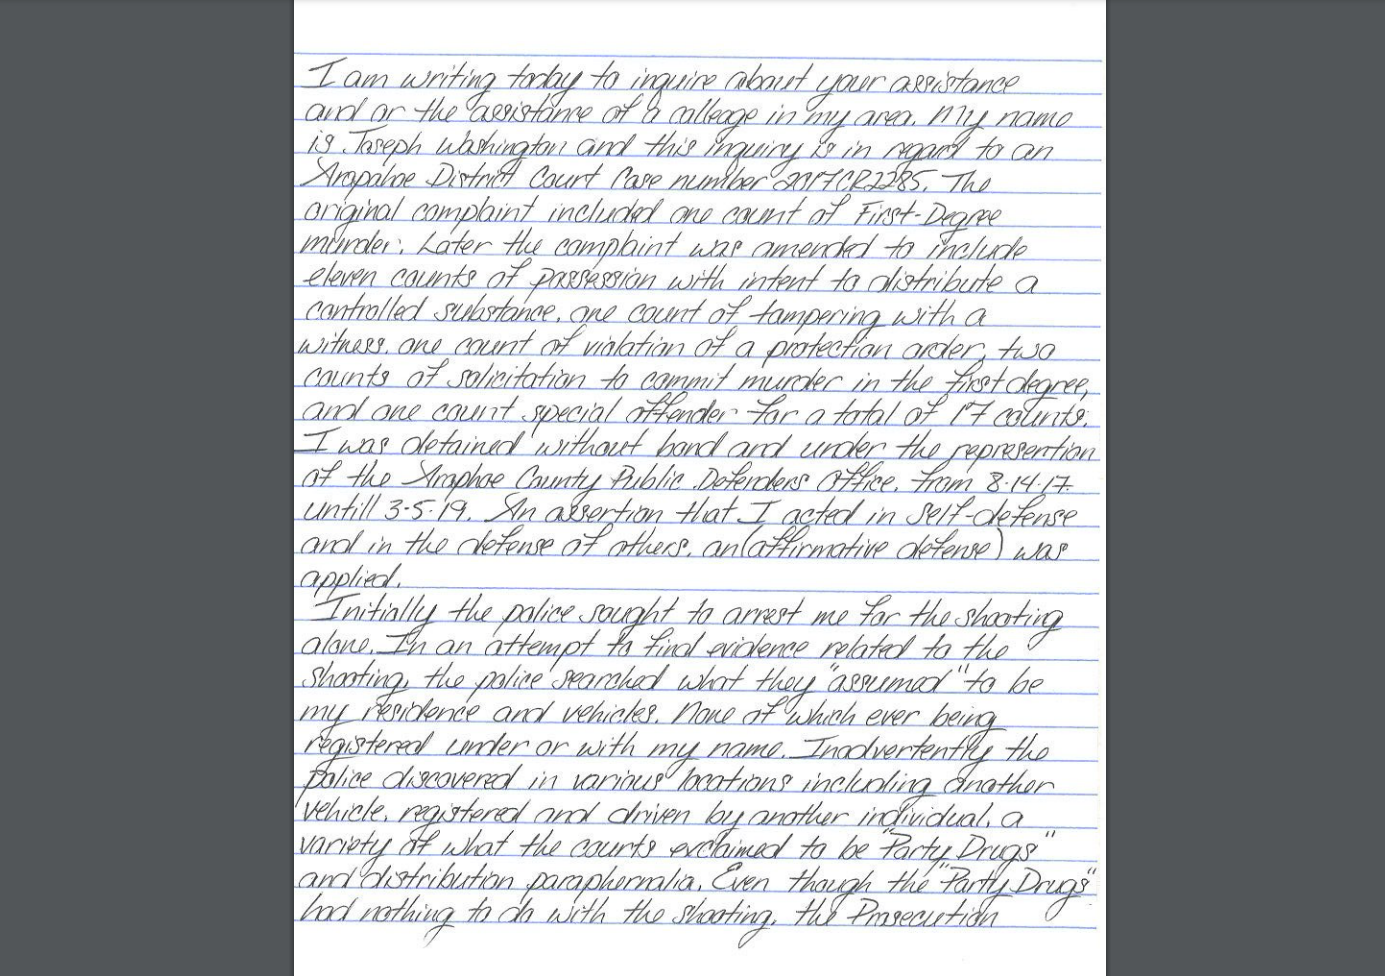 I am writing today to inquire about your assistance
and or the assistance of a colleage in my area. My name
is Joseph Washington and this inquiry is in regard to an
Arapahoe District Court Case number 2017CR2285. The
original complaint included one count of First-Degree
murder. Later the complaint was amended to include
eleven counts of possession with intent to distribute a
controlled substance, one count of tampering with a
witness, one count of violation of a protection order, two
counts of solicitation to commit murder in the first degree,
and one count special offender for a total of 17 counts.
I was detained without bond and under the represention
of the Araphoe County Public Defenders Office, from 8-14-17
untill 3-5-19. An assertion that I acted in self-defense
and in the defense of others, an (affirmative defense) was
applied.
Initially the police sought to arrest me for the shooting
alone. In an attempt to find evidence related to the
shooting, the police searched what they "assumed" to be
my residence and vehicles. None of which ever being
registered under or with my name. Inadvertently the
police discovered in various locations including another
vehicle, registered and driven by another individual, a
variety of what the courts exclaimed to be "Party Drugs"
and distribution paraphernalia. Even though the "Party Drugs"
had nothing to do with the shooting, the Prosecution